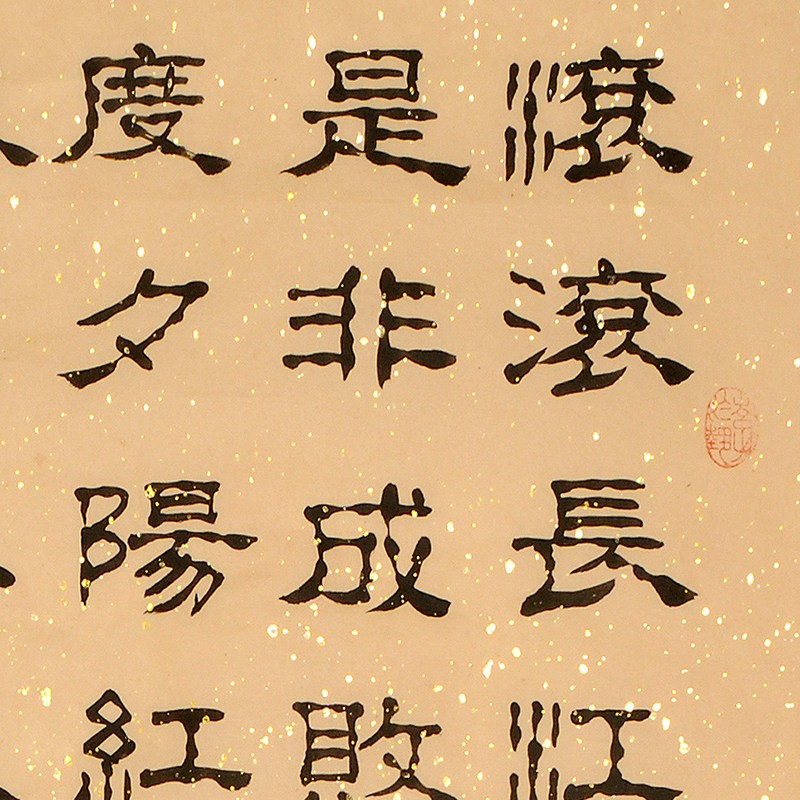 滾滾長江
是非成敗
度夕陽紅